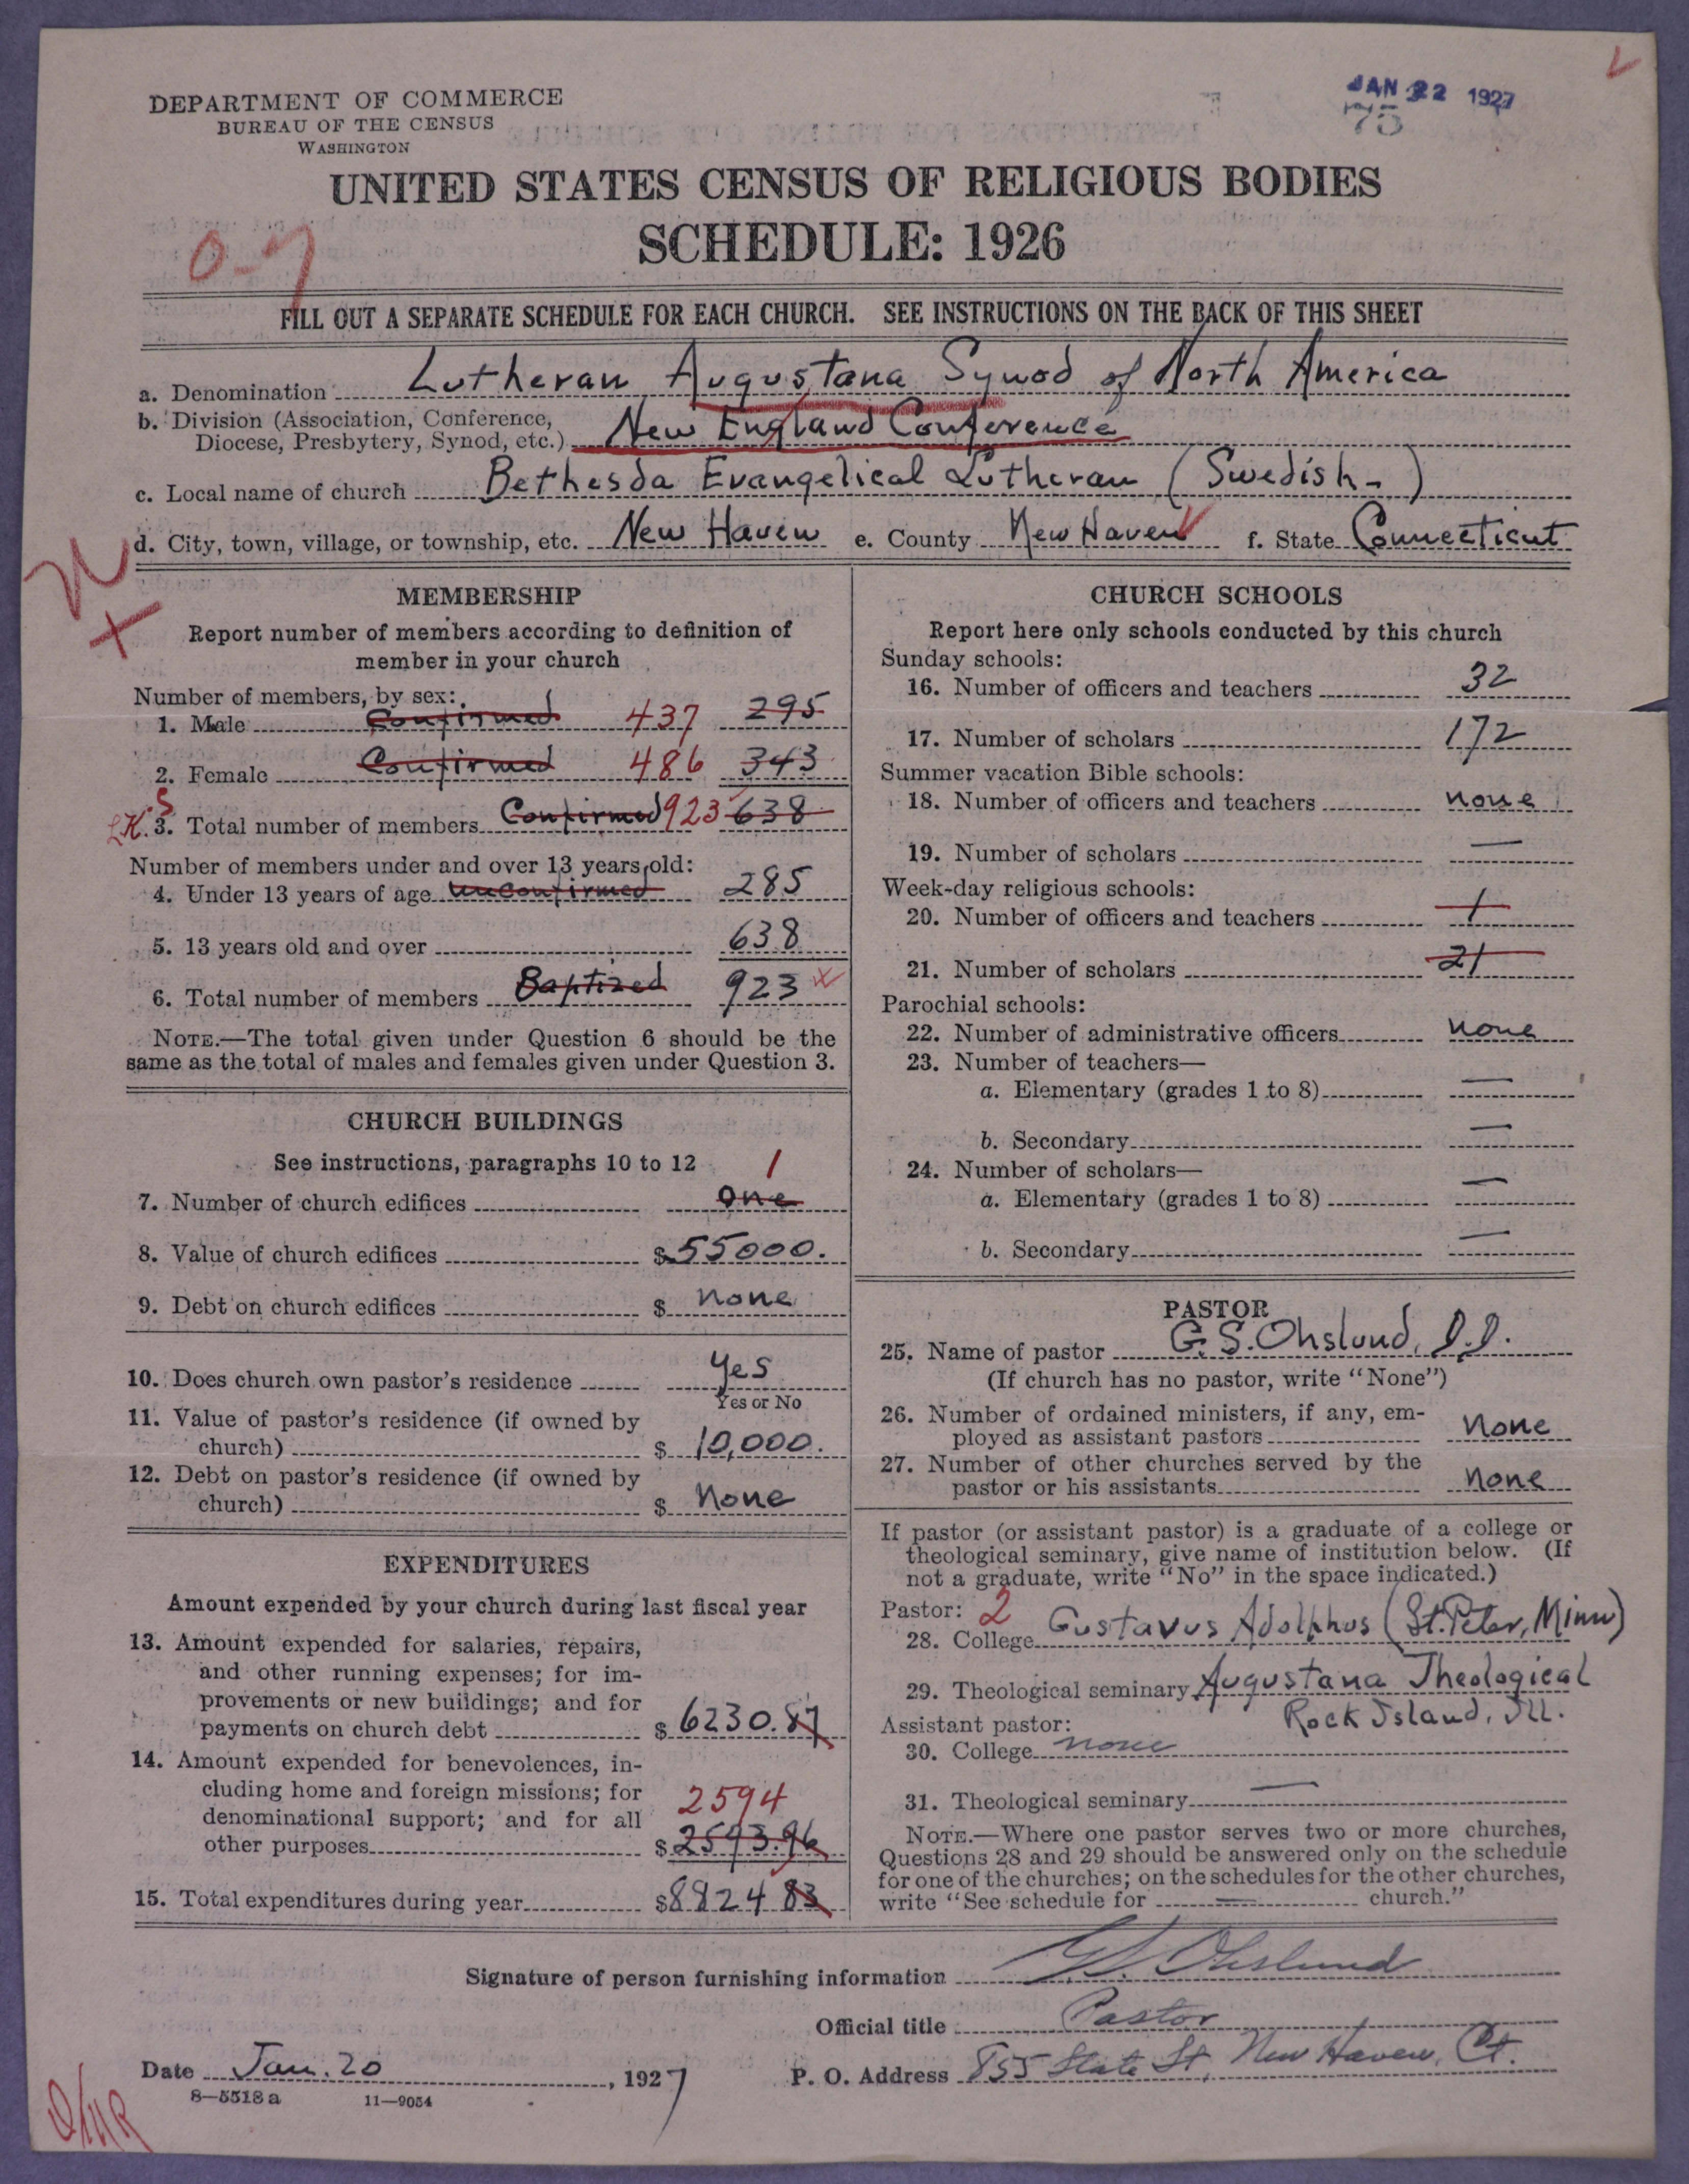 DEPARTMENT OF COMMERCE
BUREAU OF THE CENSUS
WASHINGTON
JAN 22 1927
75
UNITED STATES CENSUS OF RELIGIOUS BODIES
SCHEDULE: 1926
FILL OUT A SEPARATE SCHEDULE FOR EACH CHURCH. SEE INSTRUCTIONS ON THE BACK OF THIS SHEET
a. Denomination Lutheran Augustana Synod of North America
b. Division (Association, Conference,
Diocese, Presbytery, Synod, etc.) New England Conference
c. Local name of church Bethesda Evangelical Lutheran (Swedish-)
d. City, town, village, or township, etc. New Haven e. County New Haven f. State Connecticut
MEMBERSHIP
Report number of members according to definition of
member in your church
Number of members, by sex:
1. Male Confirmed 437 295
2. Female Confirmed 486 343
3. Total number of members Confirmed 923 638
Number of members under and over 13 years old:
4. Under 13 years of age Unconfirmed 285
5. 13 years old and over 638
6. Total number of members Baptized 923
NOTE.—The total given under Question 6 should be the
same as the total of males and females given under Question 3.
CHURCH BUILDINGS
See instructions, paragraphs 10 to 12
1
7. Number of church edifices one
8. Value of church edifices $55000.
9. Debt on church edifices $ none
10. Does church own pastor's residence Yes
Yes or No
11. Value of pastor's residence (if owned by
church) $ 10,000.
12. Debt on pastor's residence (if owned by
church) $ None
EXPENDITURES
Amount expended by your church during last fiscal year
13. Amount expended for salaries, repairs,
and other running expenses; for im-
provements or new buildings; and for
payments on church debt $ 6230.87
14. Amount expended for benevolences, in-
cluding home and foreign missions; for
denominational support; and for all 2594
other purposes $ 2593.96
15. Total expenditures during year $8824 83
CHURCH SCHOOLS
Report here only schools conducted by this church
Sunday schools:
16. Number of officers and teachers 32
17. Number of scholars 172
Summer vacation Bible schools:
18. Number of officers and teachers none
19. Number of scholars —
Week-day religious schools:
20. Number of officers and teachers 1
21. Number of scholars 21
Parochial schools:
22. Number of administrative officers none
23. Number of teachers—
a. Elementary (grades 1 to 8) —
b. Secondary —
24. Number of scholars—
a. Elementary (grades 1 to 8) —
b. Secondary —
PASTOR
25. Name of pastor G. S. Ohslund, D.D.
(If church has no pastor, write "None")
26. Number of ordained ministers, if any, em-
ployed as assistant pastors None
27. Number of other churches served by the
pastor or his assistants None
If pastor (or assistant pastor) is a graduate of a college or
theological seminary, give name of institution below. (If
not a graduate, write "No" in the space indicated.)
Pastor: 2
28. College Gustavus Adolphus (St. Peter, Minn)
29. Theological seminary Augustana Theological
Rock Island, Ill.
Assistant pastor:
30. College none
31. Theological seminary —
NOTE.—Where one pastor serves two or more churches,
Questions 28 and 29 should be answered only on the schedule
for one of the churches; on the schedules for the other churches,
write "See schedule for — church."
Signature of person furnishing information G. S. Ohslund
Official title Pastor
Date Jan. 20, 1927 P. O. Address 855 State St, New Haven, Ct.
8—5518a 11—9054